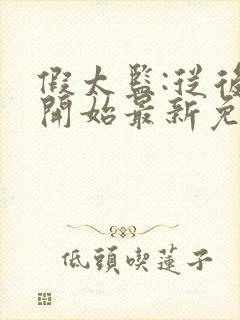 假太監:從後
開始最新免
低頭喫蓮子